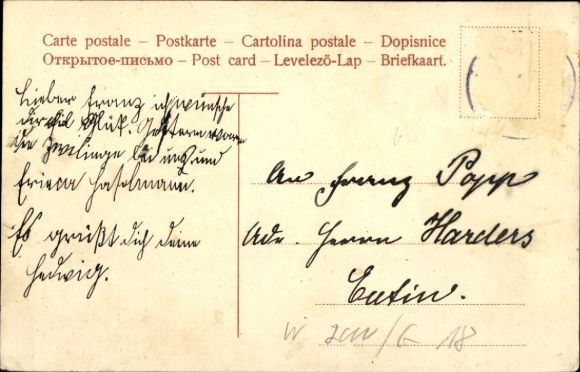 Carte postale – Postkarte – Cartolina postale – Dopisnice
Открытое-письмо – Post card – Levelező-Lap – Briefkaart.
Lieber Franz ich wünsche
dir viel Glük. Gestern waren
die Zwilinge bei uns und
Erieca Haselmann.
Es grüßt dich deine
Hedwig.
An Franz Popp
Adr. Herrn Harders
Eutin.
18